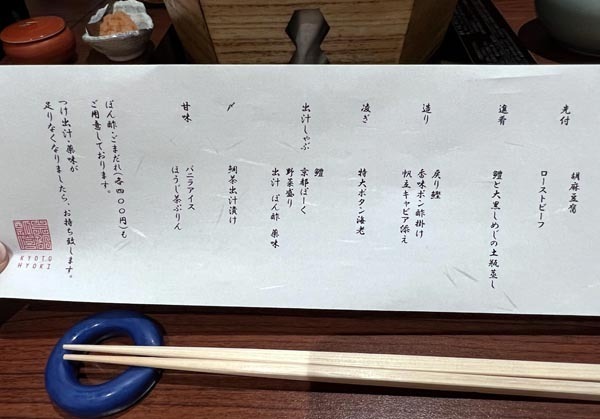 先付
胡麻豆腐
ローストビーフ
進肴
鱧と大黒しめじの土瓶蒸し
造り
炙り鰹
香味ポン酢掛け
帆立キャビア添え
凌ぎ
特大ボタン海老
出汁しゃぶ
鱧
京都ぽーく
野菜盛り
出汁 ぽん酢 薬味
〆
鯛茶出汁漬け
甘味
バニラアイス
ほうじ茶ぷりん
ぽん酢・ごまだれ(各四〇〇円)も
ご用意しております。
つけ出汁・薬味が
足りなくなりましたら、お持ち致します。
KYOTO
HYOKI